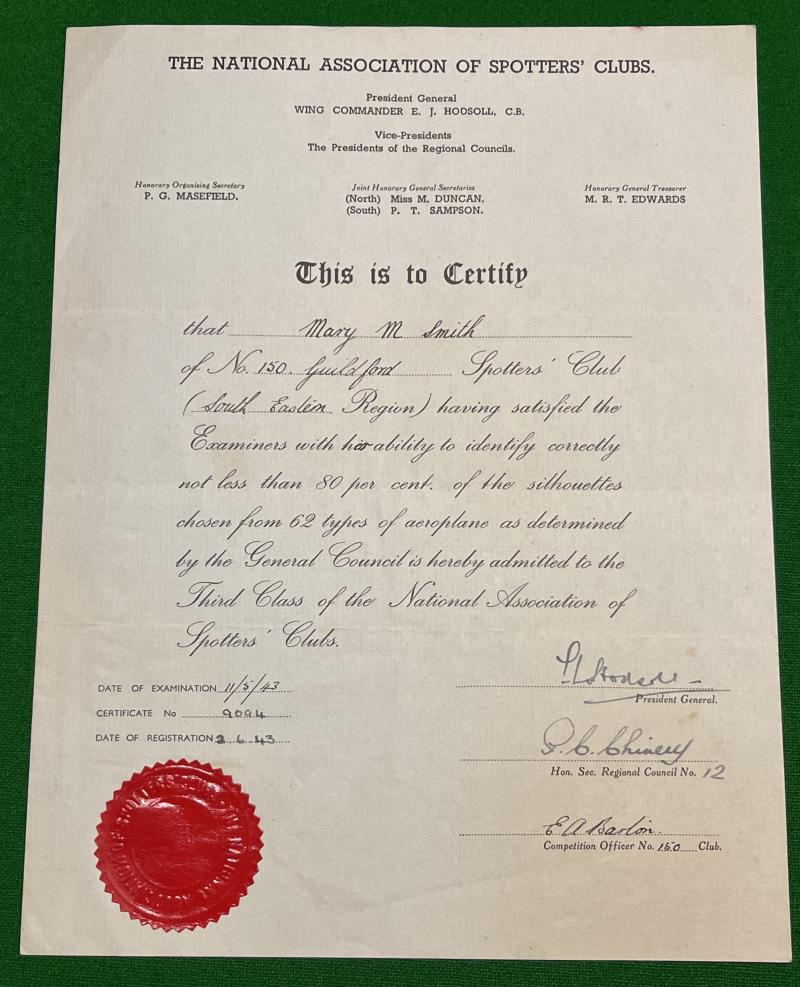 THE NATIONAL ASSOCIATION OF SPOTTERS' CLUBS.
President General
WING COMMANDER E. J. HODSOLL, C.B.
Vice-Presidents
The Presidents of the Regional Councils.
Honorary Organising Secretary
P. G. MASEFIELD.
Joint Honorary General Secretaries
(North) Miss M. DUNCAN.
(South) P. T. SAMPSON.
Honorary General Treasurer
M. R. T. EDWARDS
This is to Certify
that Mary M Smith
of No. 150. Guildford Spotters' Club
(South Eastern Region) having satisfied the
Examiners with her ability to identify correctly
not less than 80 per cent. of the silhouettes
chosen from 62 types of aeroplane as determined
by the General Council is hereby admitted to the
Third Class of the National Association of
Spotters' Clubs.
DATE OF EXAMINATION 11/5/43
CERTIFICATE No 9094
DATE OF REGISTRATION 2.6.43
Hodsoll
President General.
Hon. Sec. Regional Council No. 12
E A Barton.
Competition Officer No. 150 Club.